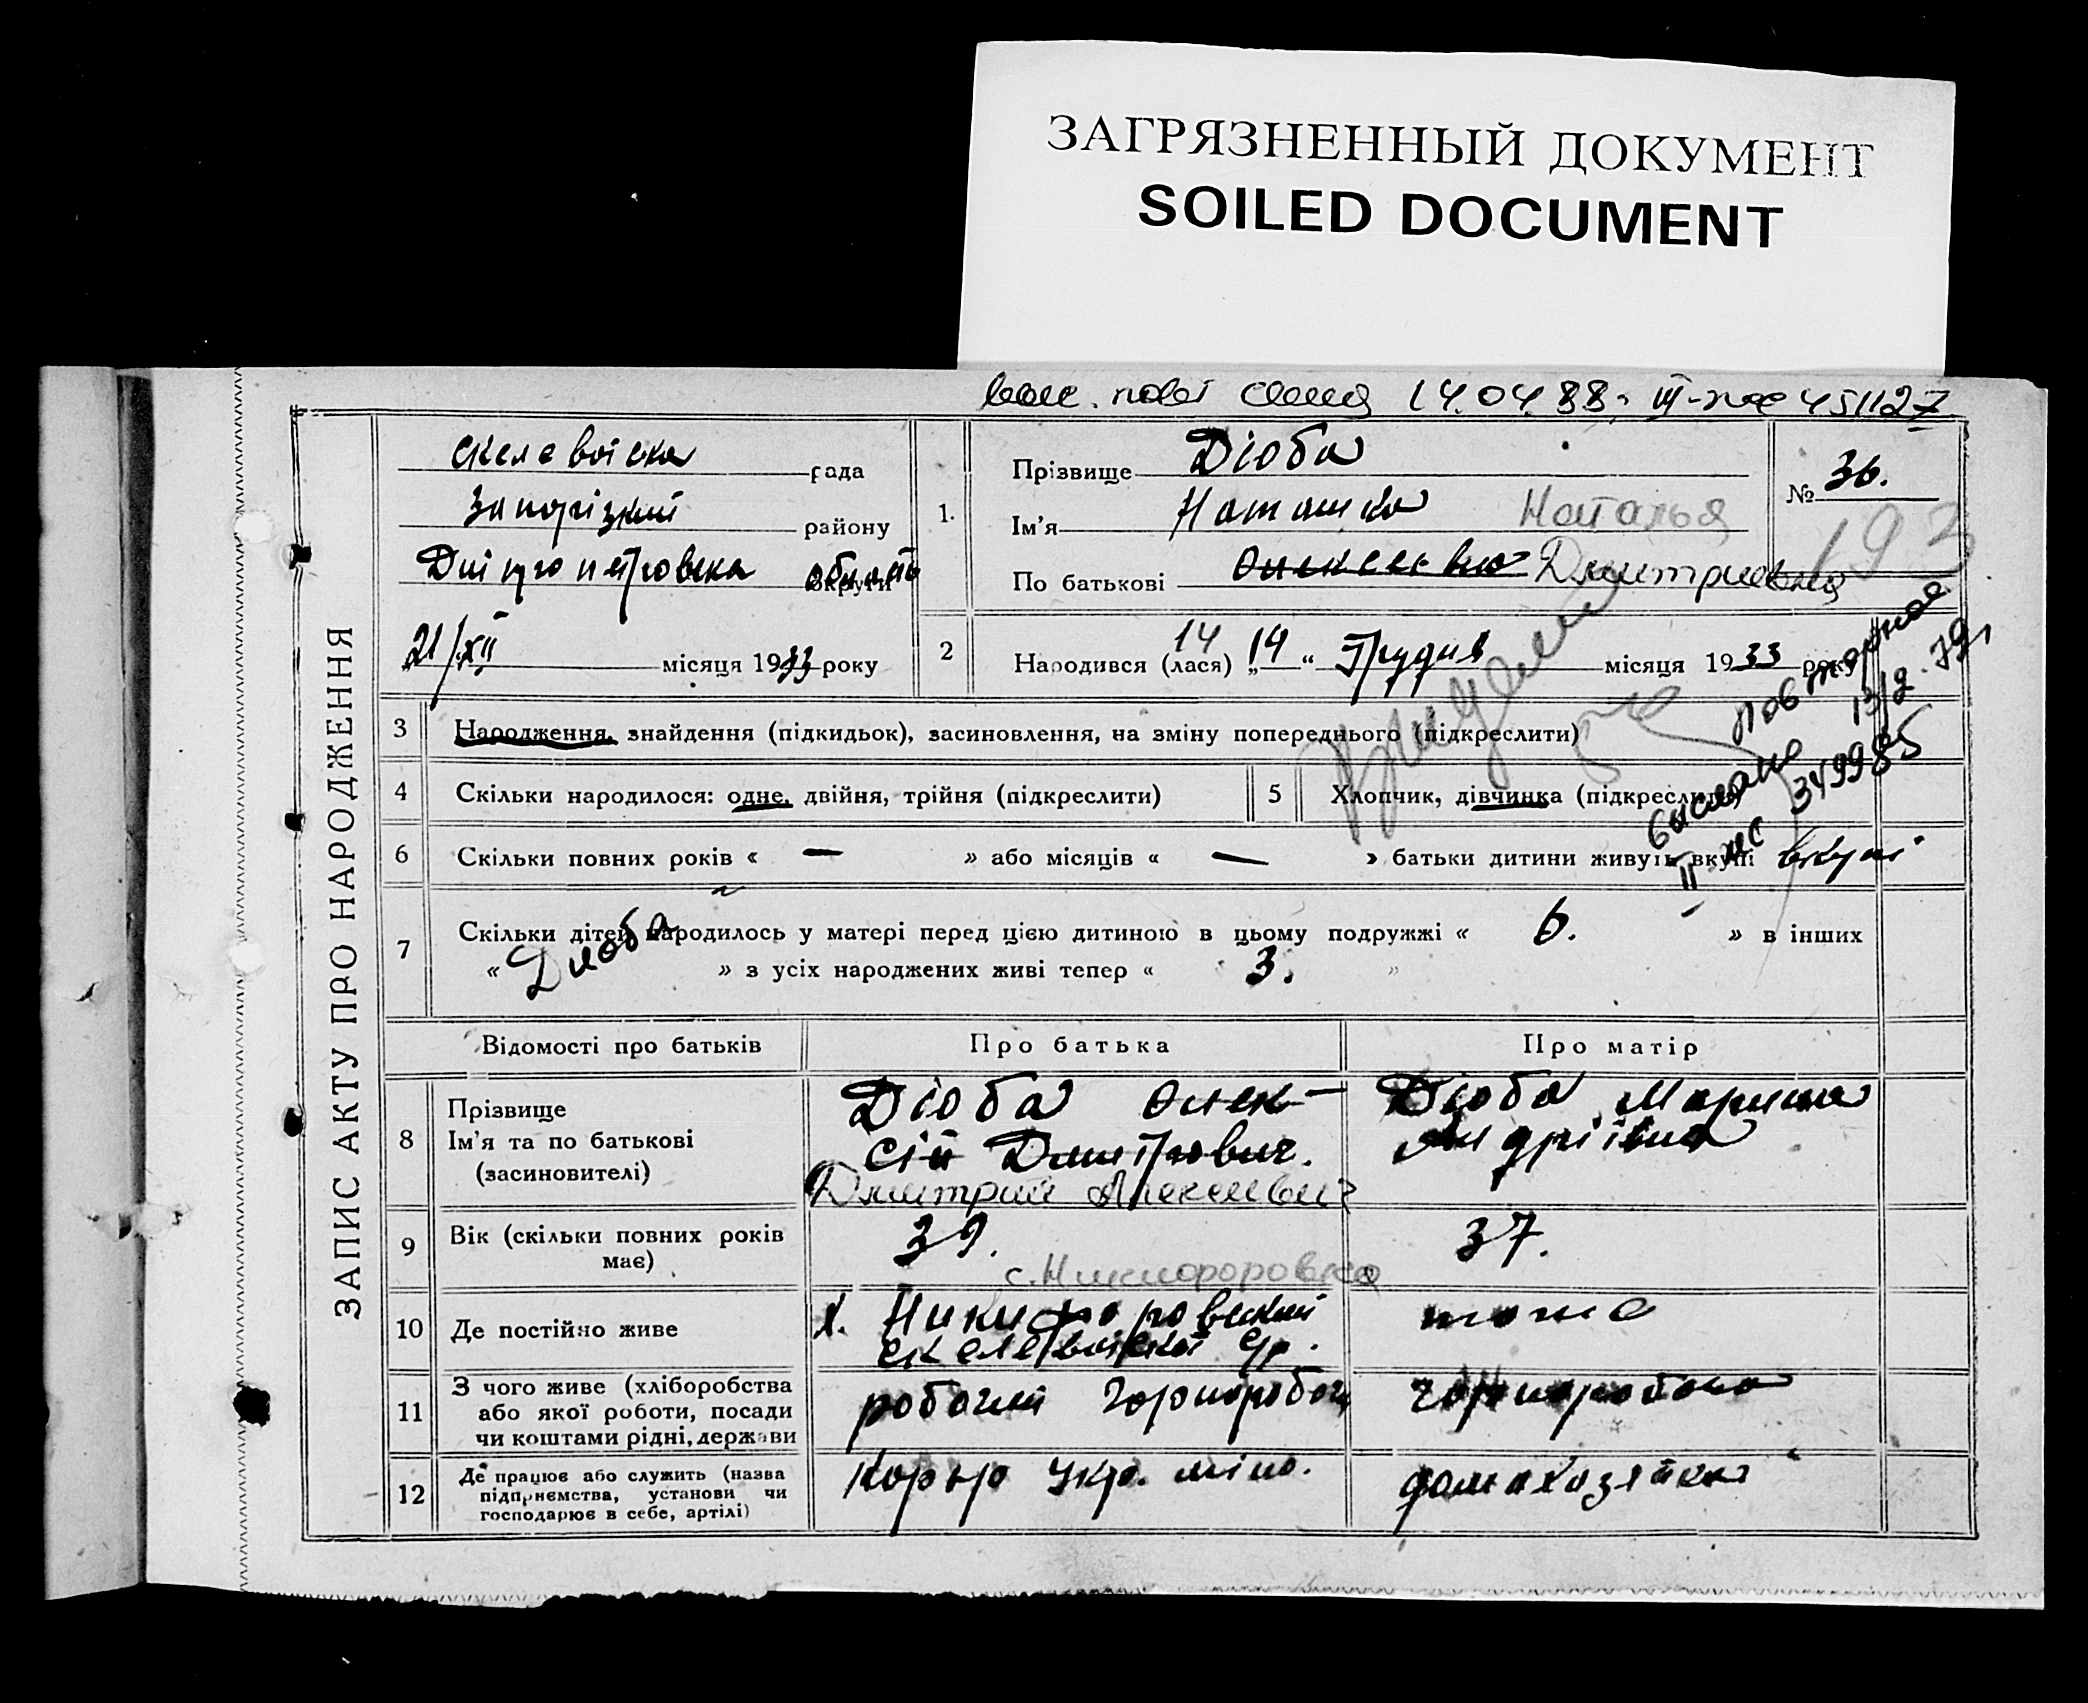 ЗАГРЯЗНЕННЫЙ ДОКУМЕНТ
SOILED DOCUMENT
14.04.88г. III-
ЗАПИС АКТУ ПРО НАРОДЖЕННЯ
рада
Запорізкий району
Дніпропетровська область округи
21/XII місяця 1933 року
1. Прізвище Діоба
Ім'я Наташка Наталья
По батькові Олексеевна Дмитриевна
№ 36.
193
2 Народився (лася) 14 „14“ Грудня місяця 1933 року
повторное
выслано
13/2.79г
II ЖС 349985
3 Народження, знайдення (підкидьок), засиновлення, на зміну попереднього (підкреслити)
4 Скільки народилося: одне, двійня, трійня (підкреслити)
5 Хлопчик, дівчинка (підкреслити)
6 Скільки повних років « — » або місяців « — » батьки дитини живуть вкупі вкупі
7 Скільки дітей народилось у матері перед цією дитиною в цьому подружжі « 6. » в інших
« Дзюба » з усіх народжених живі тепер « 3. »
Відомості про батьків Про батька Про матір
8 Прізвище Ім'я та по батькові (засиновителі)
Діоба Олек-
сій Дмитрович.
Дмитрий Алексеевич
Діоба Марина
Андріївна
9 Вік (скільки повних років має) 39. 37.
с. Никифоровка
10 Де постійно живе
х. Никифоровский
тоже
11 З чого живе (хліборобства
або якої роботи, посади
чи коштами рідні, держави
робочий чорнороб
чорноробоча
12 Де працює або служить (назва
підприємства, установи чи
господарює в себе, артілі)
Карьер Укр.
домахазяйка